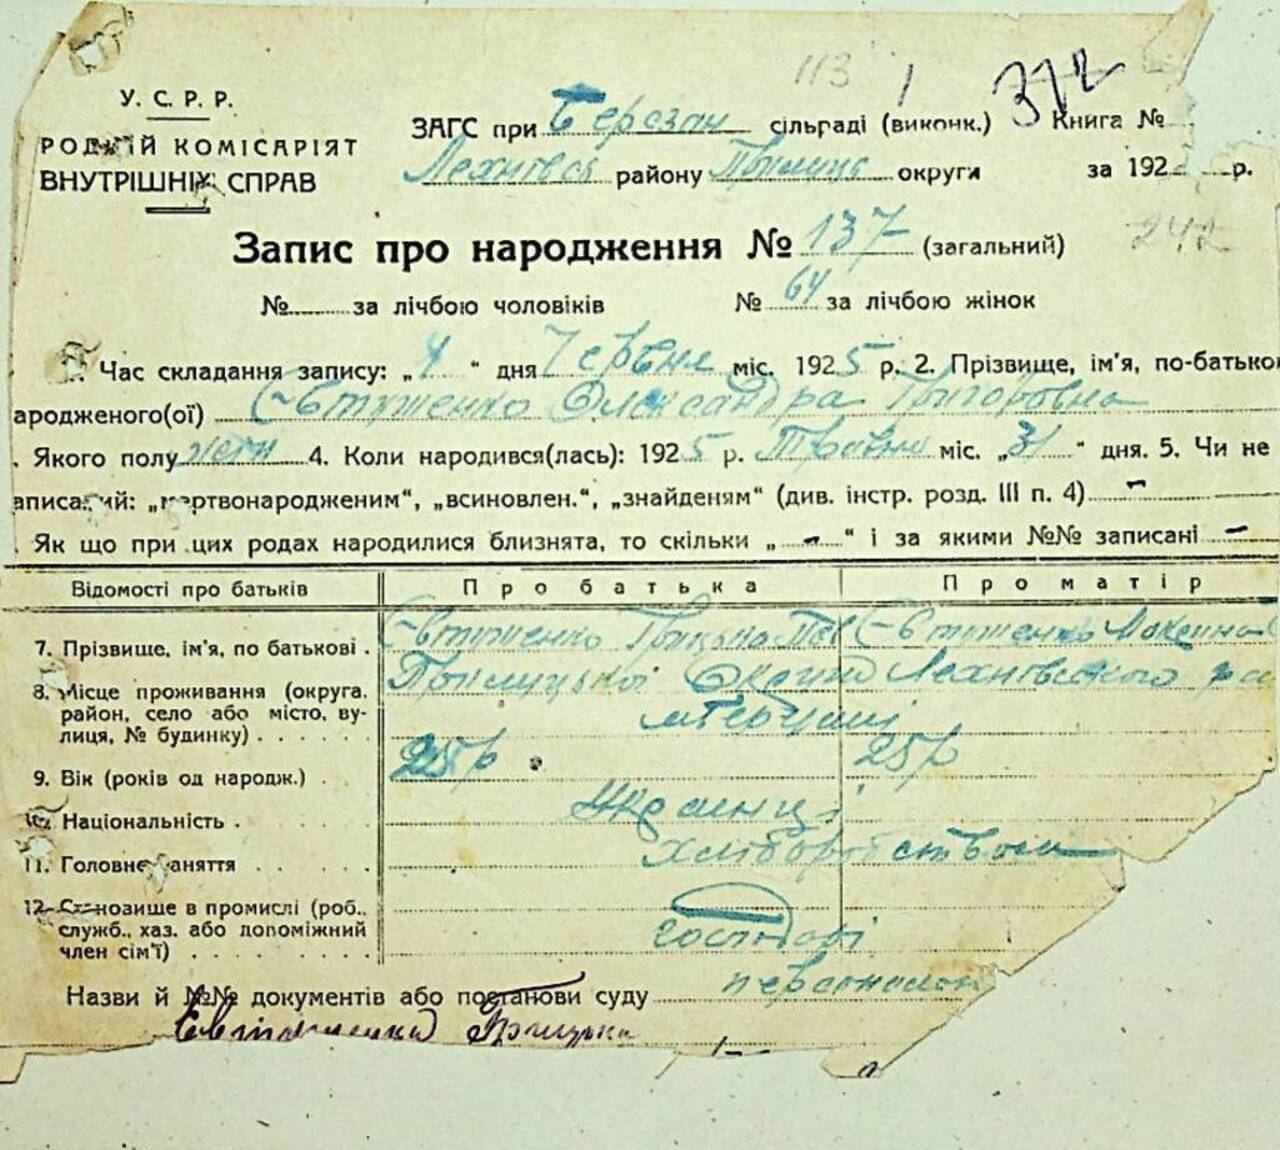 113 / 372
У. С. Р. Р.
РОДНІЙ КОМІСАРІЯТ
ВНУТРІШНІХ СПРАВ
ЗАГС при Березан сільраді (виконк.) Книга №
Лехнівськ району Прилуць округи за 192 р.
Запис про народження № 137 (загальний) 242
№ за лічбою чоловіків № 64 за лічбою жінок
Час складання запису: „4“ дня Червня міс. 1925 р. 2. Прізвище, ім'я, по-батькові
ародженого(ої) Євтушенко Олександра Григоровна
. Якого полу жін 4. Коли народився(лась): 1925 р. Травня міс. „31“ дня. 5. Чи не
аписаний: „мертвонародженим“, „всиновлен.“, „знайденям“ (див. інстр. розд. III п. 4) -
. Як що при цих родах народилися близнята, то скільки „-“ і за якими №№ записані -
Відомості про батьків Про батька Про матір
7. Прізвище, ім'я, по батькові . Євтушенко Грицько Євтушенко
8. Місце проживання (округа, Прилуцької Округи Лехнівського
район, село або місто, ву-
лиця, № будинку) . . . . . .
9. Вік (років од народж.) . 25 р 25 р
10. Національність . Українці
11. Головне заняття . . . . . . хліборобством
12. Становище в промислі (роб.,
служб., хаз. або допоміжний господарі
член сім'ї) . . . . . . . .
Назви й №№ документів або постанови суду персонально
Євтушенко Грицько